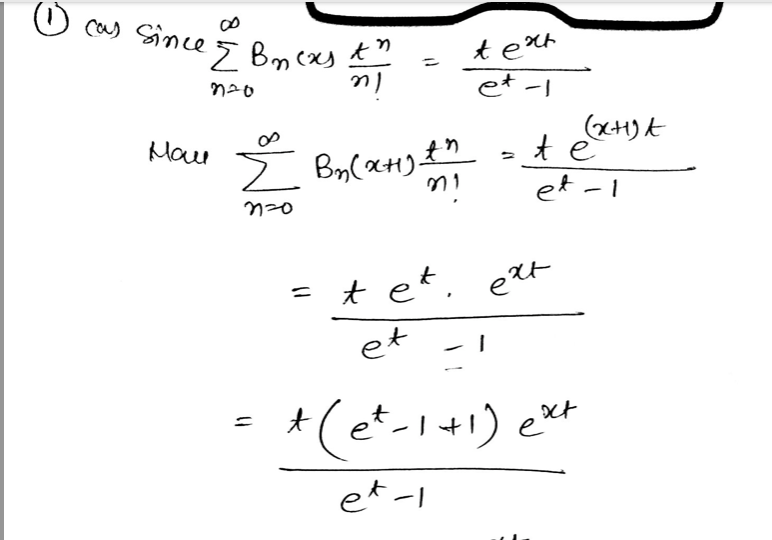 ① (a) Since ∑_{n=0}^{∞} Bn(x) t^n/n! = t e^{xt}/(e^t - 1)
Now ∑_{n=0}^{∞} Bn(x+1) t^n/n! = t e^{(x+1)t}/(e^t - 1)
= t e^t . e^{xt}/(e^t - 1)
= t(e^t - 1 + 1) e^{xt}/(e^t - 1)